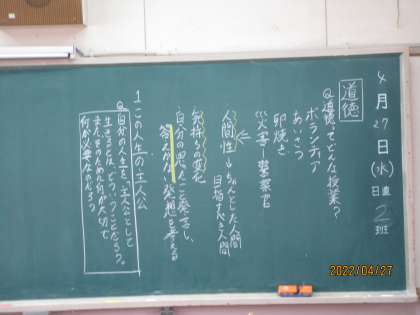 4月27日(水)
日直
2班
道徳
Q 道徳ってどんな授業?
ボランティア
あいさつ
卵焼き
災害 警察官
人間性 ちゃんとした人間
目指すべき人間
気持ちの変化
自分の思ったこと発表し、
答えがない発想を考える
1 この人生の主人公
Q 自分の人生を、主人公として
生きるとは、どういうことだろう。
また、そのために何が大切で
何が必要なのだろう
2022/04/27